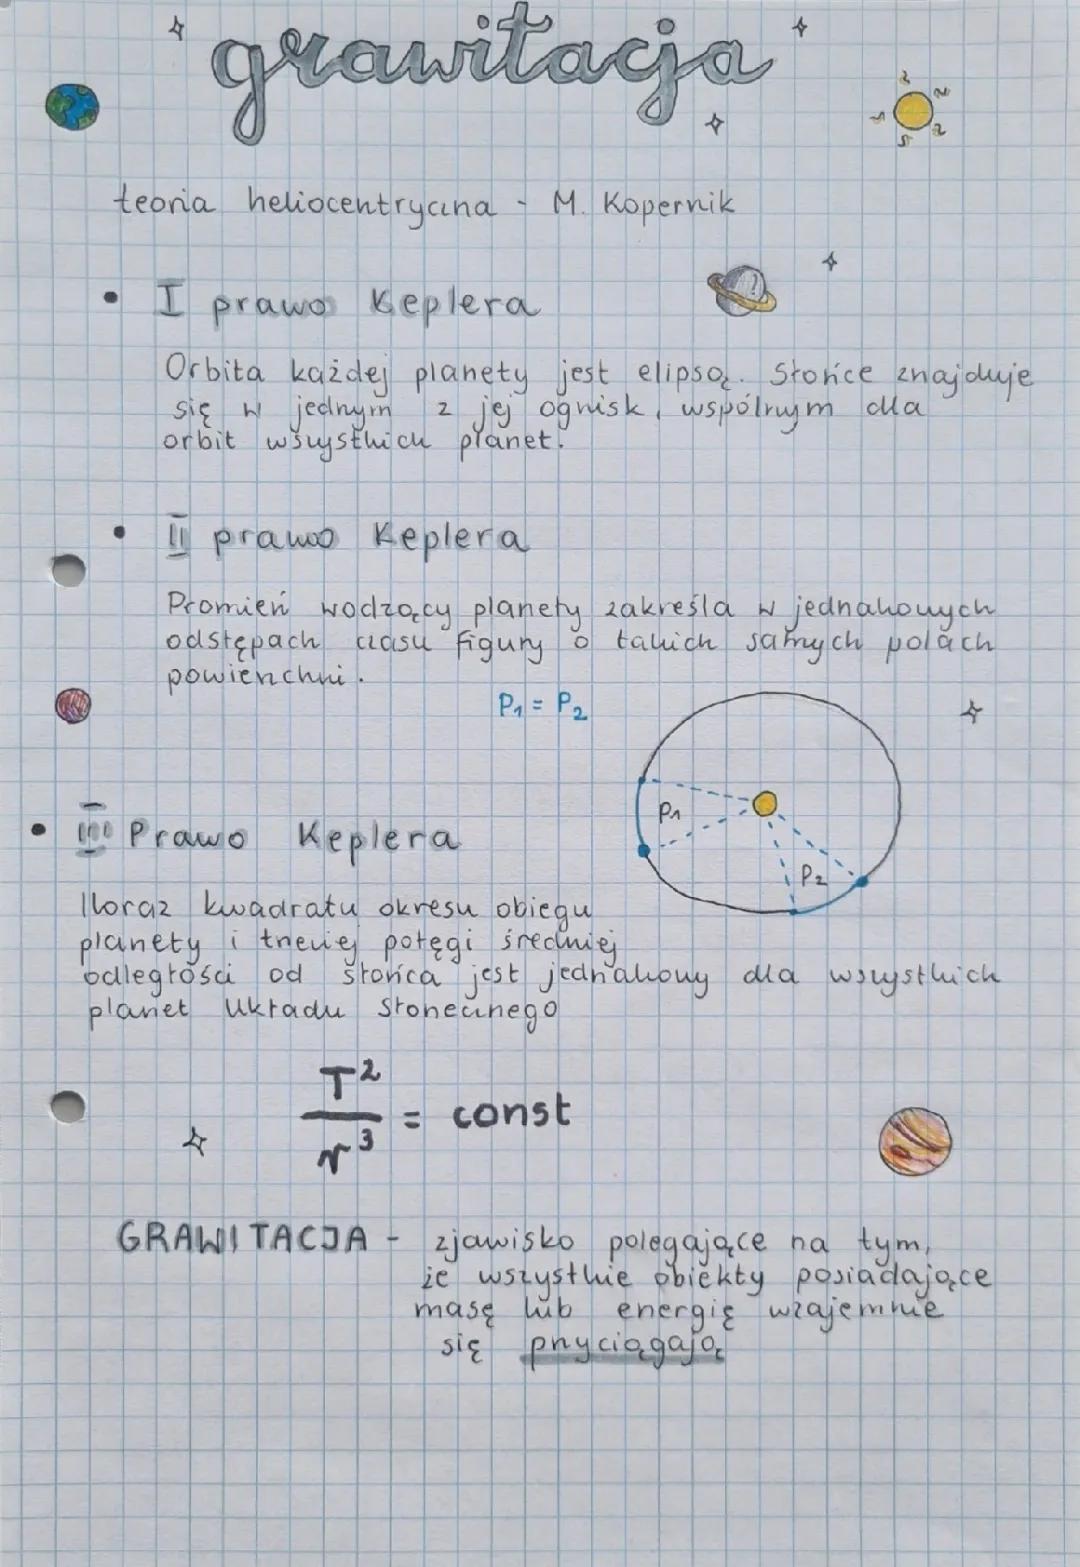 grawitacja
teoria heliocentryczna - M. Kopernik
• I prawo Keplera
Orbita każdej planety jest elipsą. Słońce znajduje
się w jednym z jej ognisk, wspólnym dla
orbit wszystkich planet.
• II prawo Keplera
Promień wodzący planety zakreśla w jednakowych
odstępach czasu figury o takich samych polach
powierzchni.
P₁ = P₂
P₁
P₂
• III Prawo Keplera
Iloraz kwadratu okresu obiegu
planety i trzeciej potęgi średniej
odległości od słońca jest jednakowy dla wszystkich
planet Układu Słonecznego
T²
/ r³ = const
GRAWITACJA - zjawisko polegające na tym,
że wszystkie obiekty posiadające
masę lub energię wzajemnie
się przyciągają